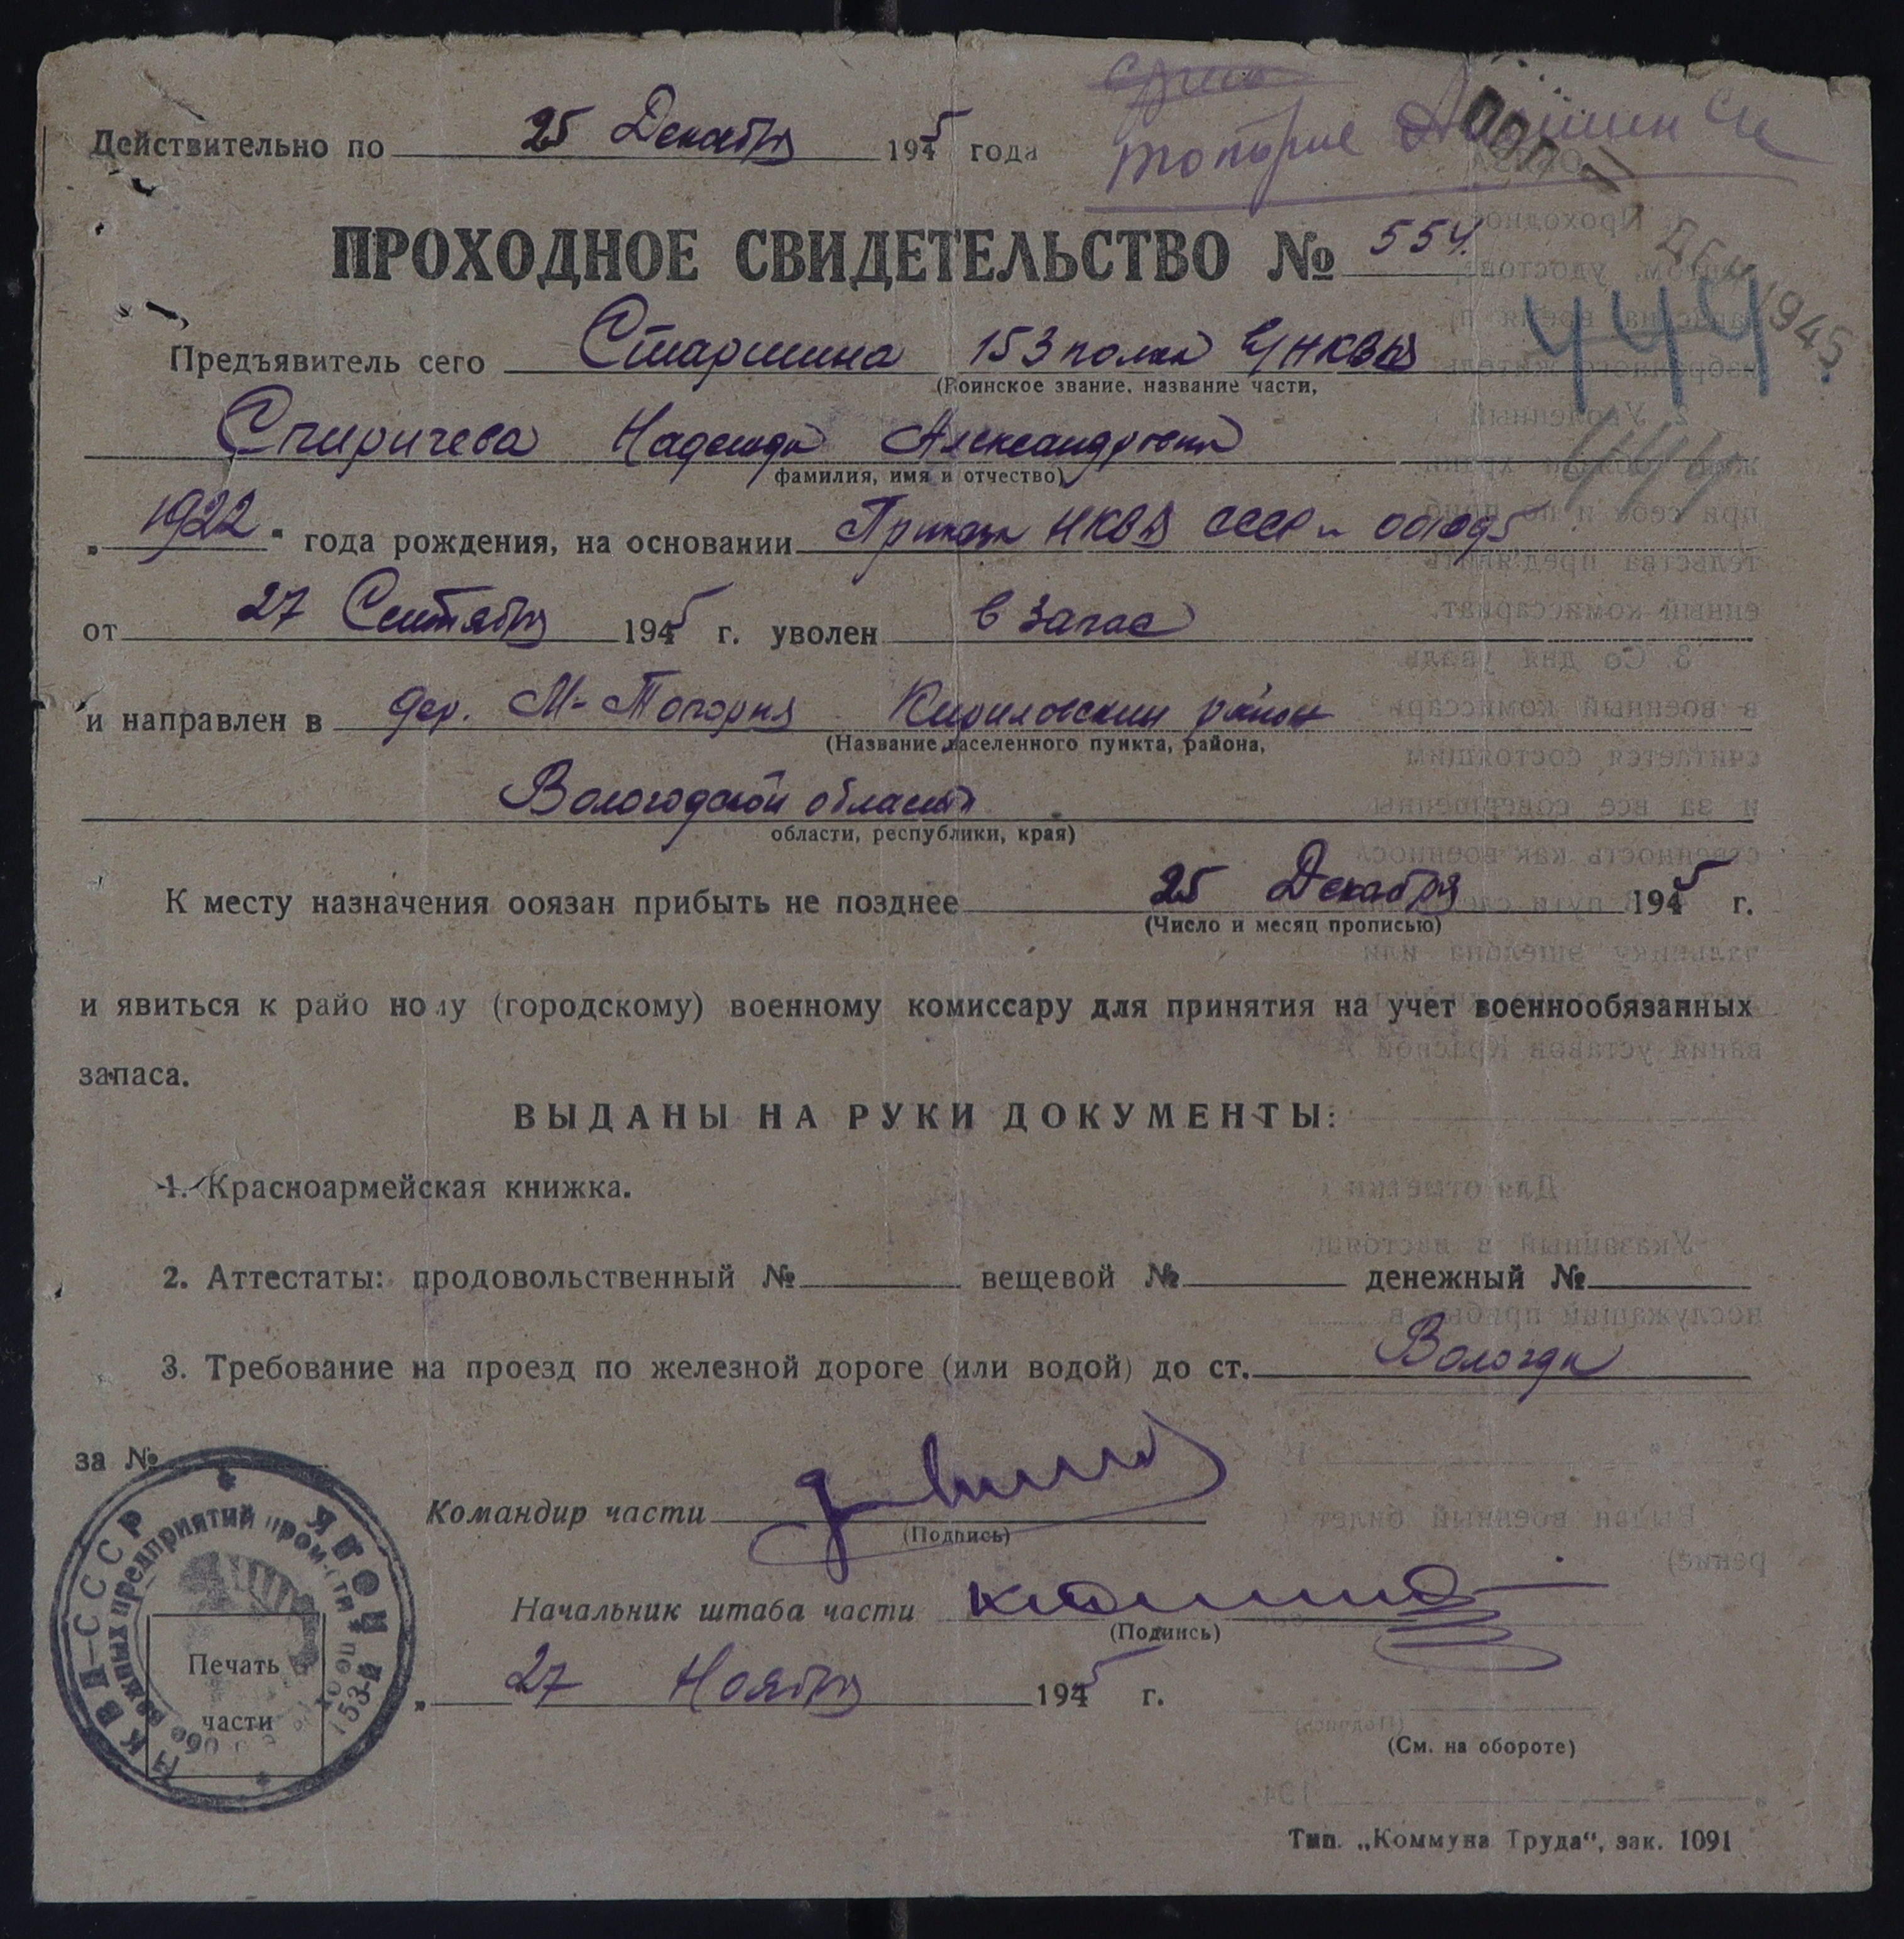 Действительно по 25 Декабря 1945 года
ПРОХОДНОЕ СВИДЕТЕЛЬСТВО № 554.
444
Предъявитель сего Старшина 153 полка НКВД
(Воинское звание, название части,
Спиричева Надежда Александровна
фамилия, имя и отчество)
„1922“ года рождения, на основании Приказа НКВД СССР
от 27 Сентября 1945 г. уволен в запас
и направлен в дер. М-Топорня Кириловский район
(Название населенного пункта, района,
Вологодской области
области, республики, края)
К месту назначения ооязан прибыть не позднее 25 Декабря 1945 г.
(Число и месяц прописью)
и явиться к районому (городскому) военному комиссару для принятия на учет военнообязанных
запаса.
ВЫДАНЫ НА РУКИ ДОКУМЕНТЫ:
1. Красноармейская книжка.
2. Аттестаты: продовольственный № вещевой № денежный №
3. Требование на проезд по железной дороге (или водой) до ст. Вологда
за №
Командир части
(Подпись)
Начальник штаба части
(Подпись)
Печать
части
„27 Ноября 1945 г.
(См. на обороте)
Тип. „Коммуна Труда“, зак. 1091